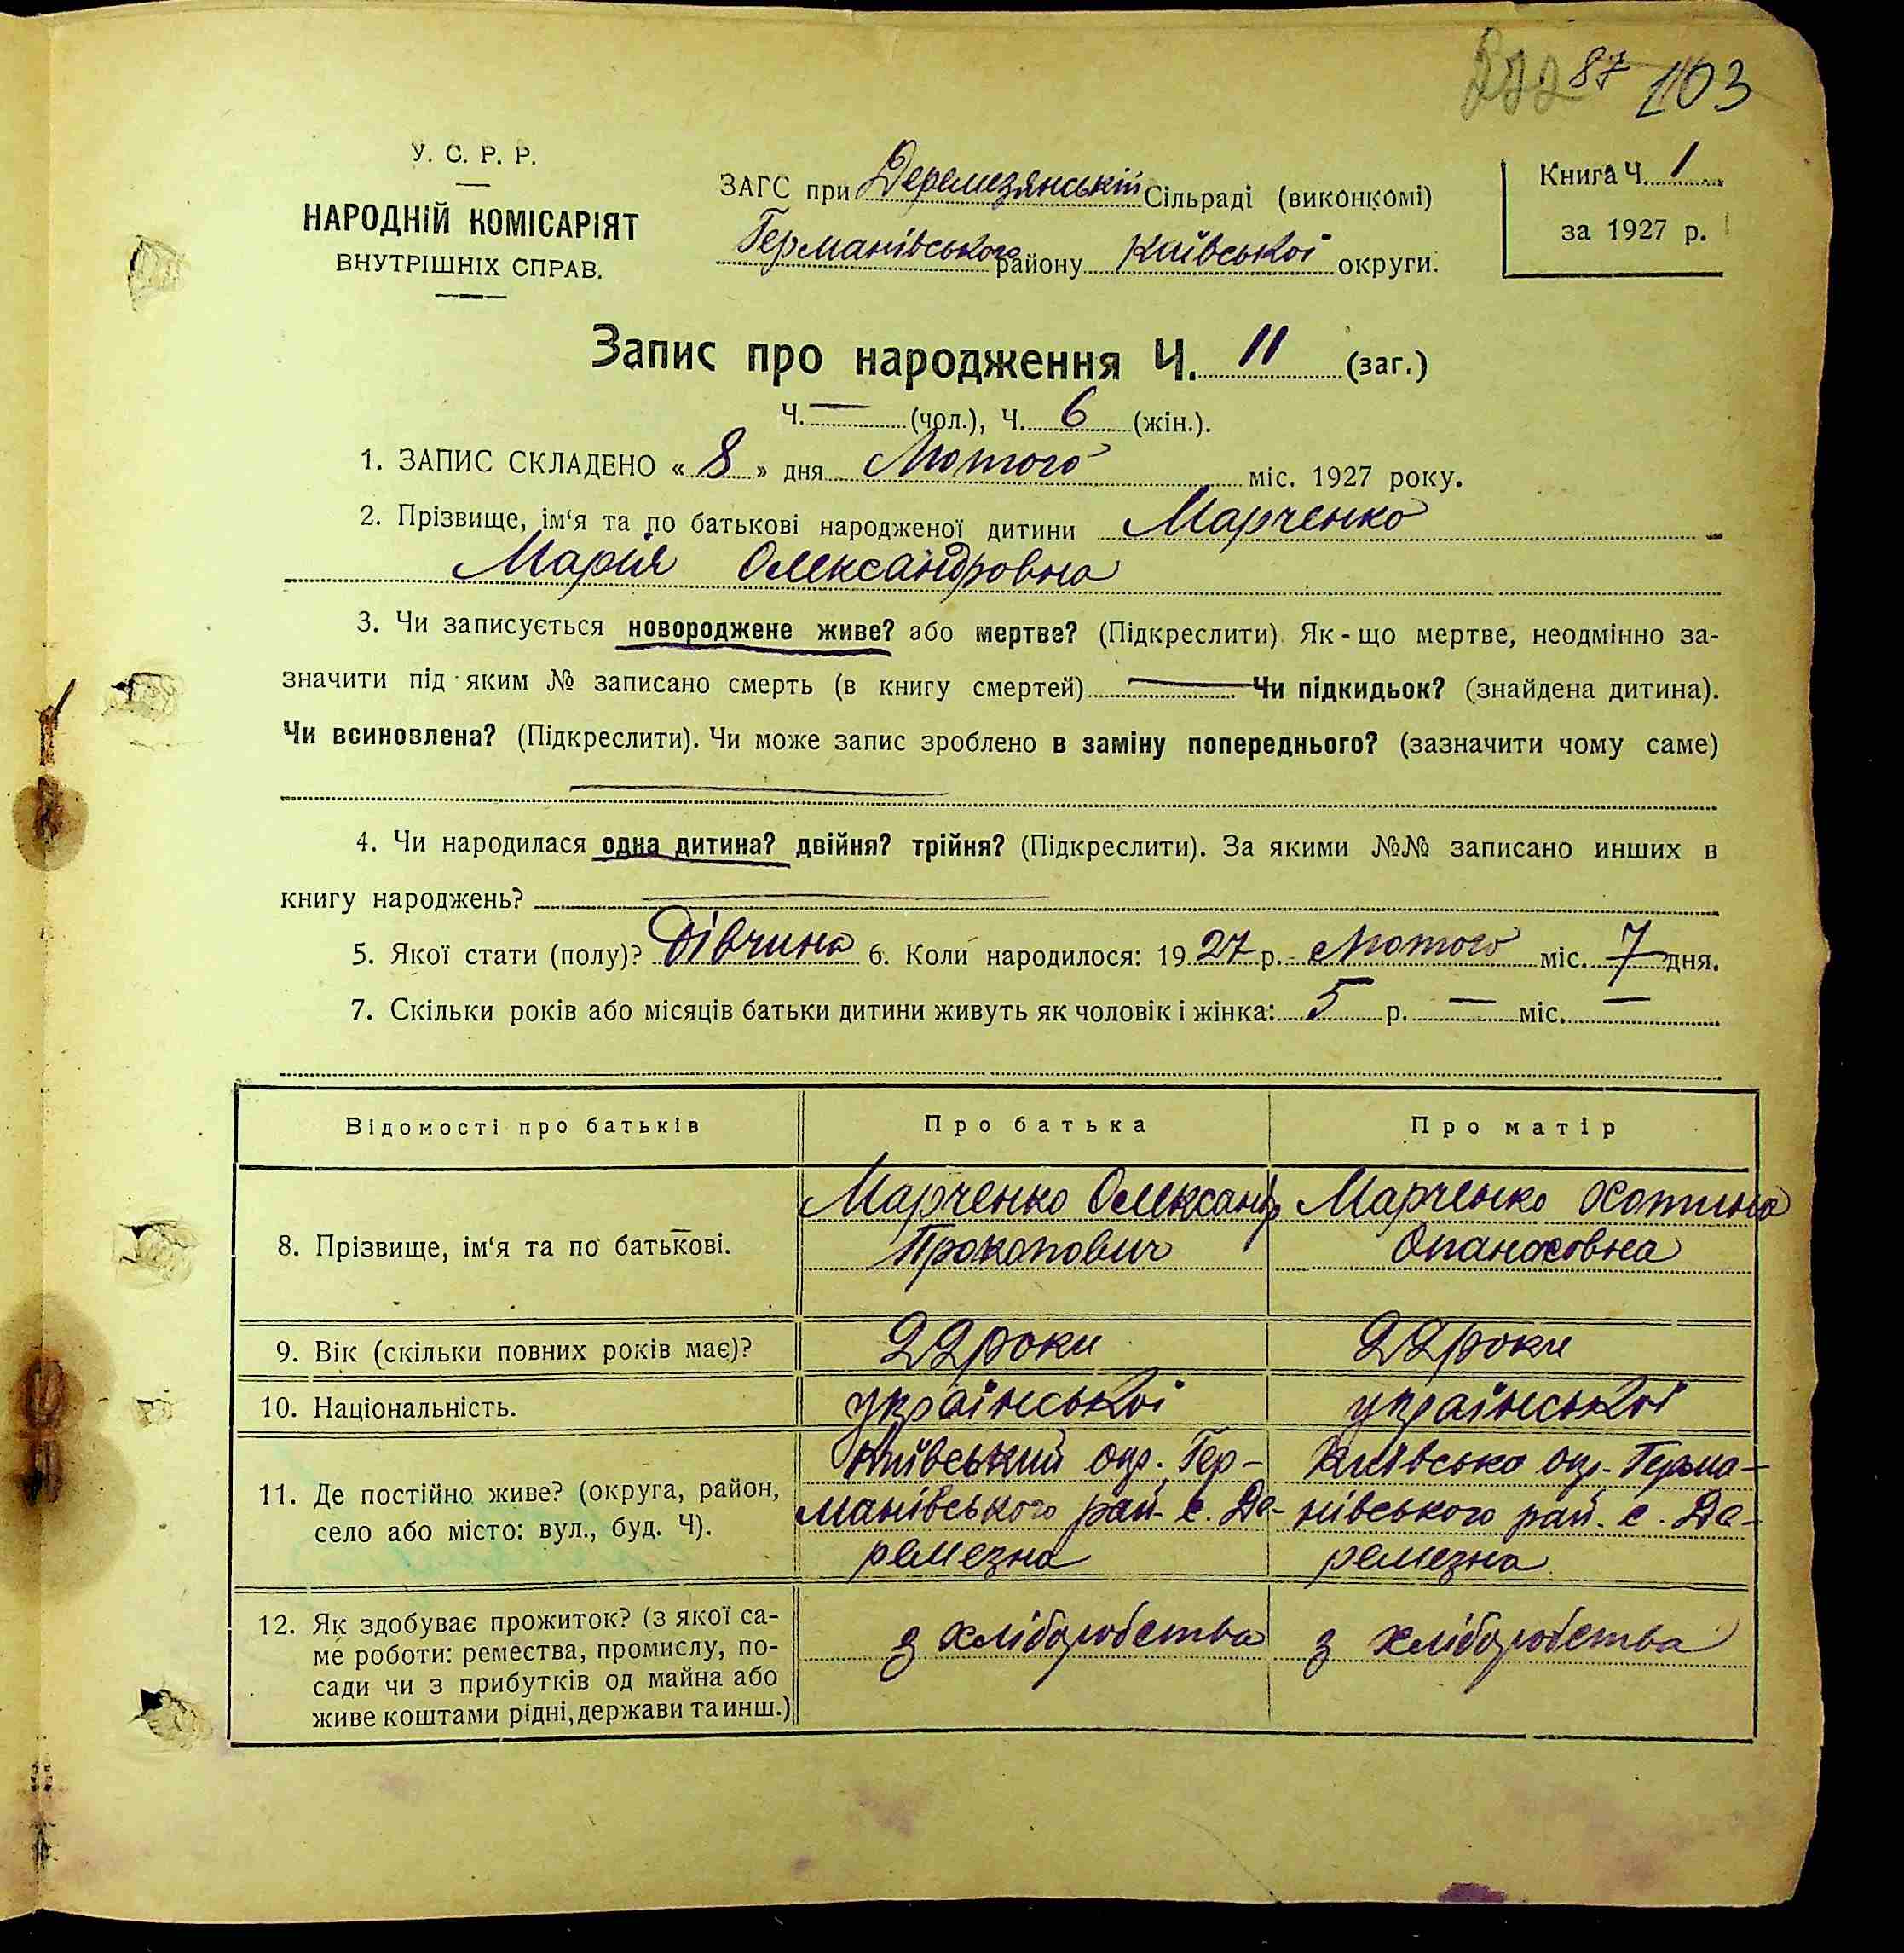 222 87 103
У. С. Р. Р.
НАРОДНІЙ КОМІСАРІЯТ
ВНУТРІШНІХ СПРАВ.
ЗАГС при Деремезянській Сільраді (виконкомі)
Германівського району Київської округи.
Книга Ч. 1
за 1927 р.
Запис про народження Ч. 11 (заг.)
Ч. — (чол.), Ч. 6 (жін.).
1. ЗАПИС СКЛАДЕНО « 8 » дня Лютого міс. 1927 року.
2. Прізвище, ім‘я та по батькові народженої дитини Марченко
Марія Олександровна
3. Чи записується новороджене живе? або мертве? (Підкреслити) Як-що мертве, неодмінно за-
значити під яким № записано смерть (в книгу смертей) — Чи підкидьок? (знайдена дитина).
Чи всиновлена? (Підкреслити). Чи може запис зроблено в заміну попереднього? (зазначити чому саме)
—
4. Чи народилася одна дитина? двійня? трійня? (Підкреслити). За якими №№ записано инших в
книгу народжень? —
5. Якої стати (полу)? Дівчина 6. Коли народилося: 1927 р. Лютого міс. 7 дня.
7. Скільки років або місяців батьки дитини живуть як чоловік і жінка: 5 р. — міс. —
Відомості про батьків Про батька Про матір
8. Прізвище, ім‘я та по батькові.
Марченко Олександр
Прокопович
Марченко Хотина
Опанасовна
9. Вік (скільки повних років має)? 22 роки 22 роки
10. Національність. української української
11. Де постійно живе? (округа, район,
село або місто: вул., буд. Ч).
Київський окр. Гер-
манівського рай. с. Де-
ремезна
Київсько окр. Герма-
нівського рай. с. Де-
ремезна
12. Як здобуває прожиток? (з якої са-
ме роботи: ремества, промислу, по-
сади чи з прибутків од майна або
живе коштами рідні, держави та инш.)
з хліборобства
з хліборобства